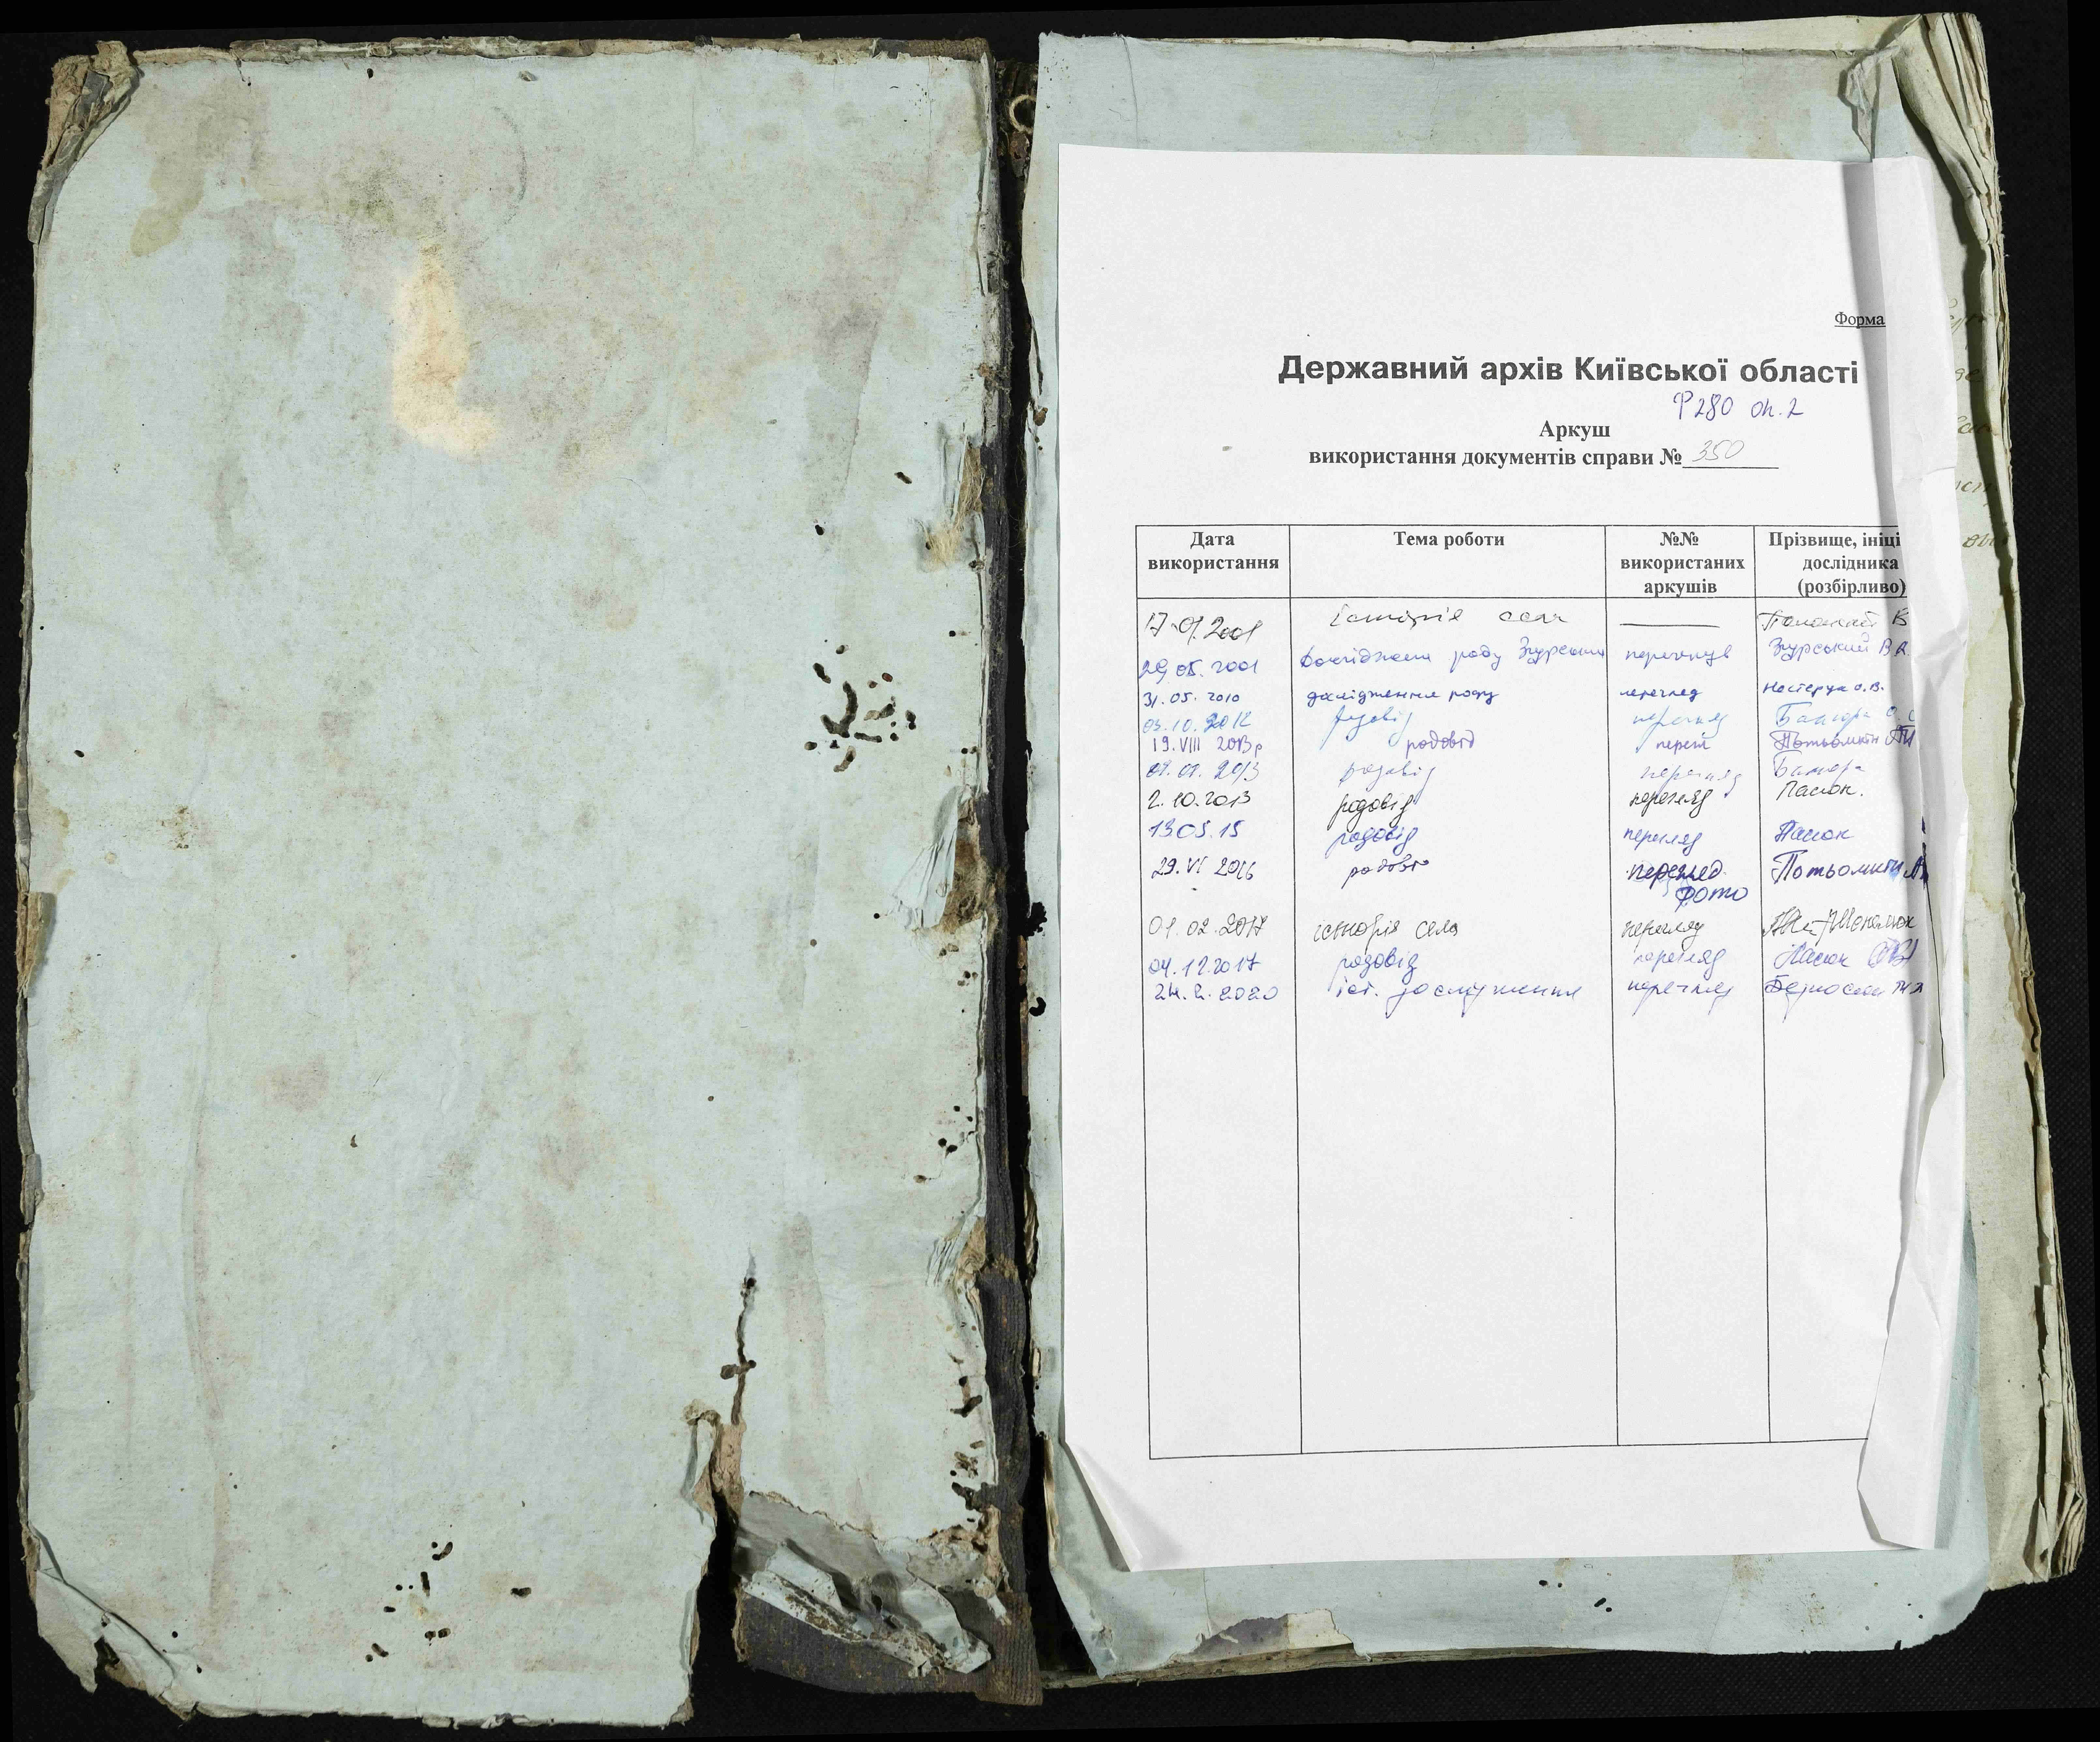 Форма
Державний архів Київської області
Ф 280 оп. 2
Аркуш
використання документів справи № 350
Дата використання Тема роботи №№ використаних аркушів Прізвище, ініці дослідника (розбірливо)
2001 історія села В
29.05.2001 роду Згурський В
31.05.2010 дослідження роду перегляд Нестерук О.В.
03.10.2012 родовід перегляд
19.VIII 2013р родовід перегл Потьомкін
2013 родовід перегляд
2.10.2013 родовід перегляд Пасюк.
13 05.15 родовід перегляд Пасюк
29.VI 2016 родовід перегляд Потьомкін
фото
01.02.2017 історія села перегляд
04.12.2017 родовід перегляд Пасюк
24.2.2020 іст. дослідження перегляд